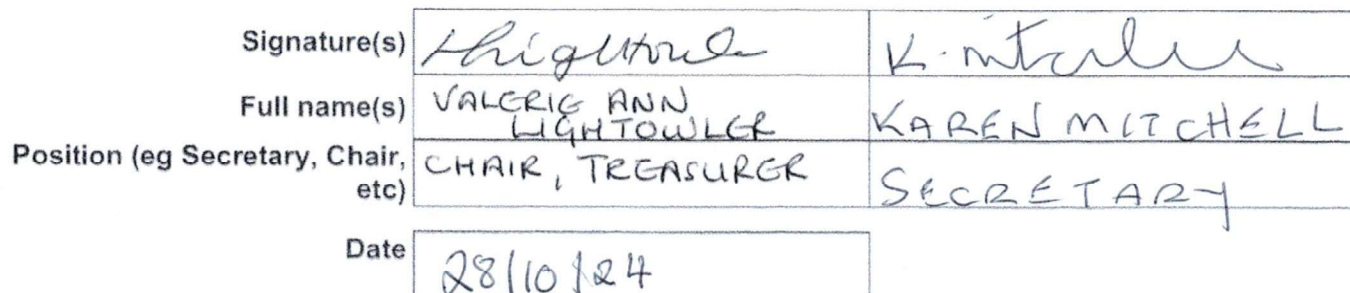 Signature(s) K. Mitchell
Full name(s) VALERIE ANN LIGHTOWLER KAREN MITCHELL
Position (eg Secretary, Chair, etc) CHAIR, TREASURER SECRETARY
Date 28/10/24